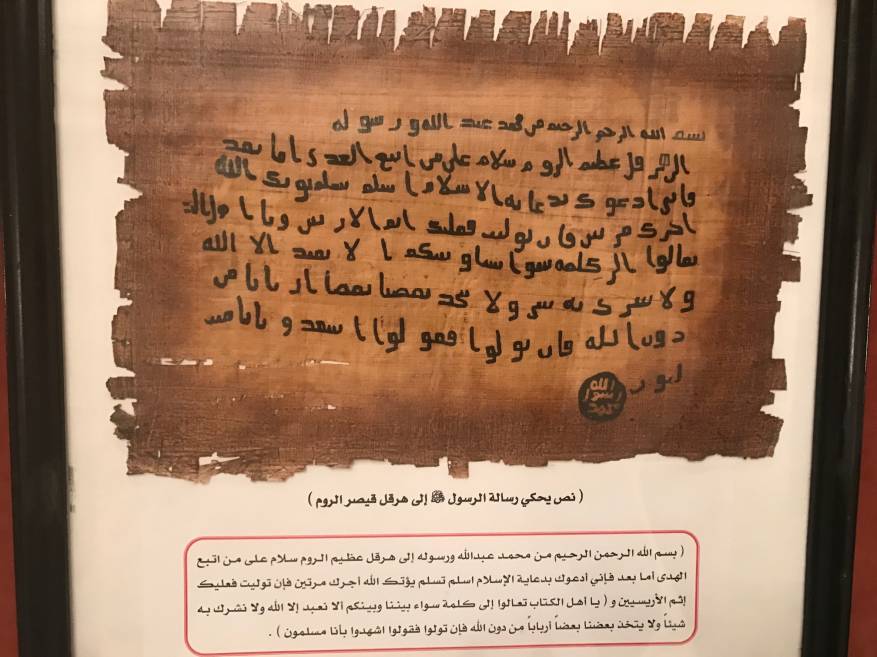 بسم الله الرحمن الرحيم من محمد عبد الله ورسوله
الى هرقل عظيم الروم سلام على من اتبع الهدى اما بعد
فاني ادعوك بدعاية الاسلام اسلم تسلم يوتك الله
اجرك مرتين فان توليت فعليك اثم الاريسين ويا اهل
تعالوا الى كلمة سوا بيننا وبينكم الا نعبد الا الله
ولا نشرك به شي ولا يتخذ بعضنا بعضا اربابا من
دون الله فان تولوا فقولوا اشهدوا بانا مس
لمون
الله
رسول
محمد
( نص يحكي رسالة الرسول ﷺ إلى هرقل قيصر الروم )
( بسم الله الرحمن الرحيم من محمد عبدالله ورسوله إلى هرقل عظيم الروم سلام على من اتبع
الهدى أما بعد فإني أدعوك بدعاية الإسلام اسلم تسلم يؤتك الله أجرك مرتين فإن توليت فعليك
إثم الأريسيين و ( يا أهل الكتاب تعالوا إلى كلمة سواء بيننا وبينكم ألا نعبد إلا الله ولا نشرك به
شيئاً ولا يتخذ بعضنا بعضاً أرباباً من دون الله فإن تولوا فقولوا اشهدوا بأنا مسلمون ) .